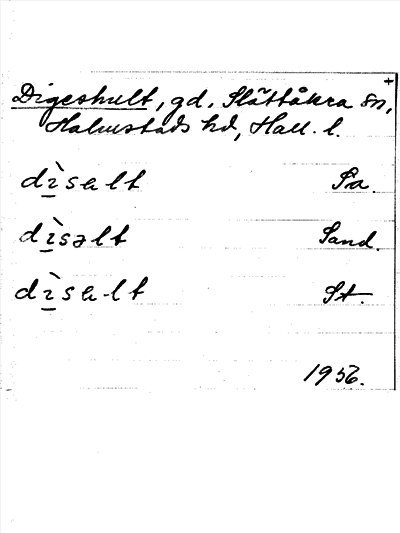 +
Digeshult, gd, Slättåkra sn,
Halmstads hd, Hall. l.
dìsɐlt Sa.
dìsəlt Sand.
dìsɐ-lt St.
1956.